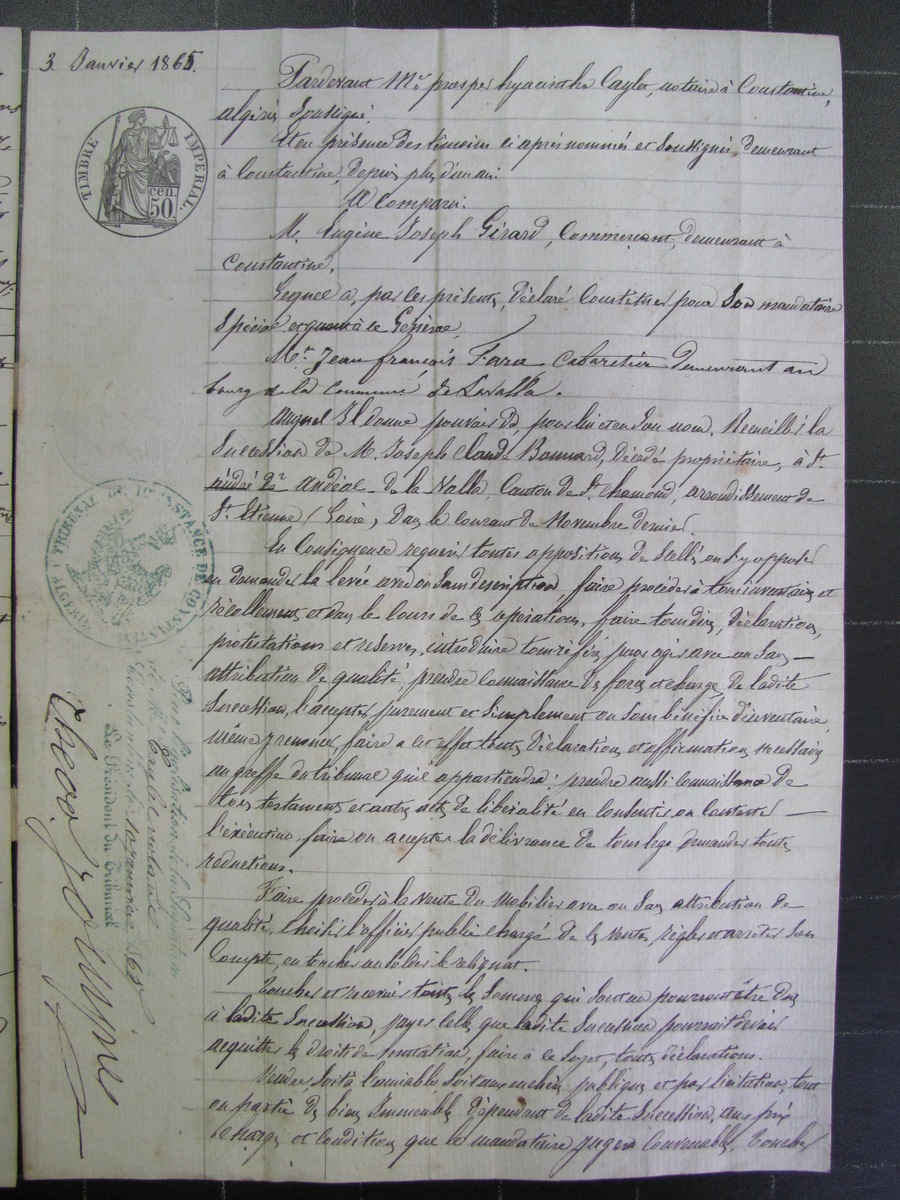 3. Janvier 1865.
TIMBRE IMPERIAL.
cen. 50
Pardevant Me prosper hyacinthe Caylet, notaire à Constantine,
algérie Soussigné,
Et en présence des témoins ci après nommés et Soussignés, demeurant
à Constantine, depuis plus d'un an:
A Comparu:
M. Eugène Joseph Girard, Commerçant, demeurant à
Constantine,
Lequel a, par ces présentes, déclaré Constituer pour Son mandataire
Spécial et quant à ce Général,
Mr. Jean françois Fara, Cabaretier demeurant au
bourg de la Commune de Lavalla.
Auquel Il donne pouvoir de, pour lui et en Son nom, Recueillir la
Succession de M. Joseph Claude Bonnard, décédé propriétaire, à St.
andéol de la Valla, Canton de St. Chamond, arrondissement de
St. Etienne (Loire), dans le courant de Novembre dernier.
En Conséquence requérir toutes appositions de Scellés ou S'y opposer
en demander la levée avec ou Sans description, faire procéder à tous inventaires et
récollements et dans le cours de ces opérations, faire tous dires, déclarations,
protestations et réserves, introduire tous référés, pour agir avec ou Sans
attribution de qualité, prendre Connaissance des forces et charges de ladite
Succession, l'accepter purement et Simplement ou Sous bénéfice d'inventaire
même y renoncer, faire à cet effet toutes déclarations et affirmations nécessaires
au greffe du tribunal qu'il appartiendra; prendre aussi Connaissance de
tous testaments et autres actes de libéralité en Consentir ou Contester
l'éxécution, faire ou accepter la délivrance de tous legs, demander toutes
réductions.
Faire procéder à la vente du Mobilier avec ou Sans attribution de
qualité, Choisir l'officier public chargé de la vente, régler et arrêter Son
Compte, en toucher ou Solder le reliquat.
Toucher et recevoir toutes les Sommes qui Sont ou pourront être dues
à ladite Succession, payer celles que ladite Succession pourrait devoir
acquitter les droits de mutation, faire à ce Sujet, toutes déclarations.
Vendre Soit à l'amiable, Soit aux enchères publiques et par licitation, tout
ou partie des biens Immeubles dépendant de ladite Succession, aux prix
Charges et Conditions que le mandataire jugera Convenables, Toucher
TRIBUNAL DE 1re INSTANCE DE CONSTANTINE
(ALGERIE)
Pour légalisation de la Signature
de Me Caylet notaire
Constantine
Le Président du Tribunal